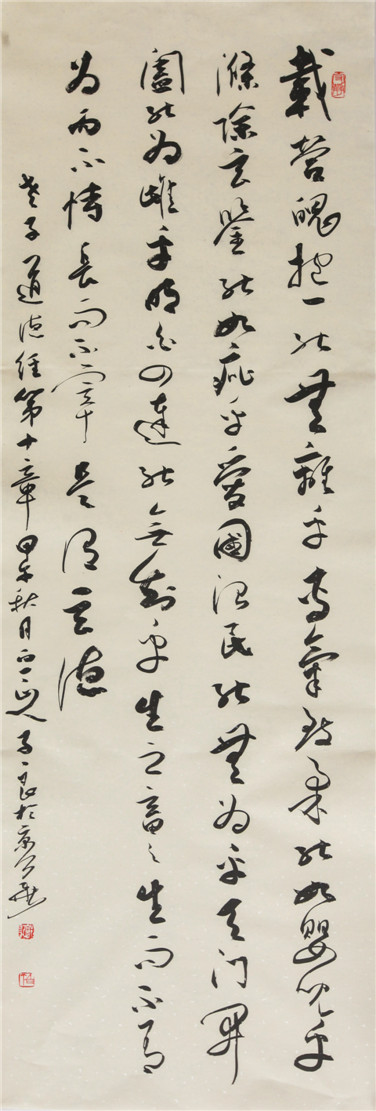 載營魄抱一能無離乎專氣致柔能如嬰兒乎
滌除玄鑒能如疵乎愛國治民能無為乎天門開
闔能為雌乎明白四達能無知乎生之畜之生而不有
為而不恃長而不宰是謂玄德
老子道德經第十章甲午秋月人子良於京華